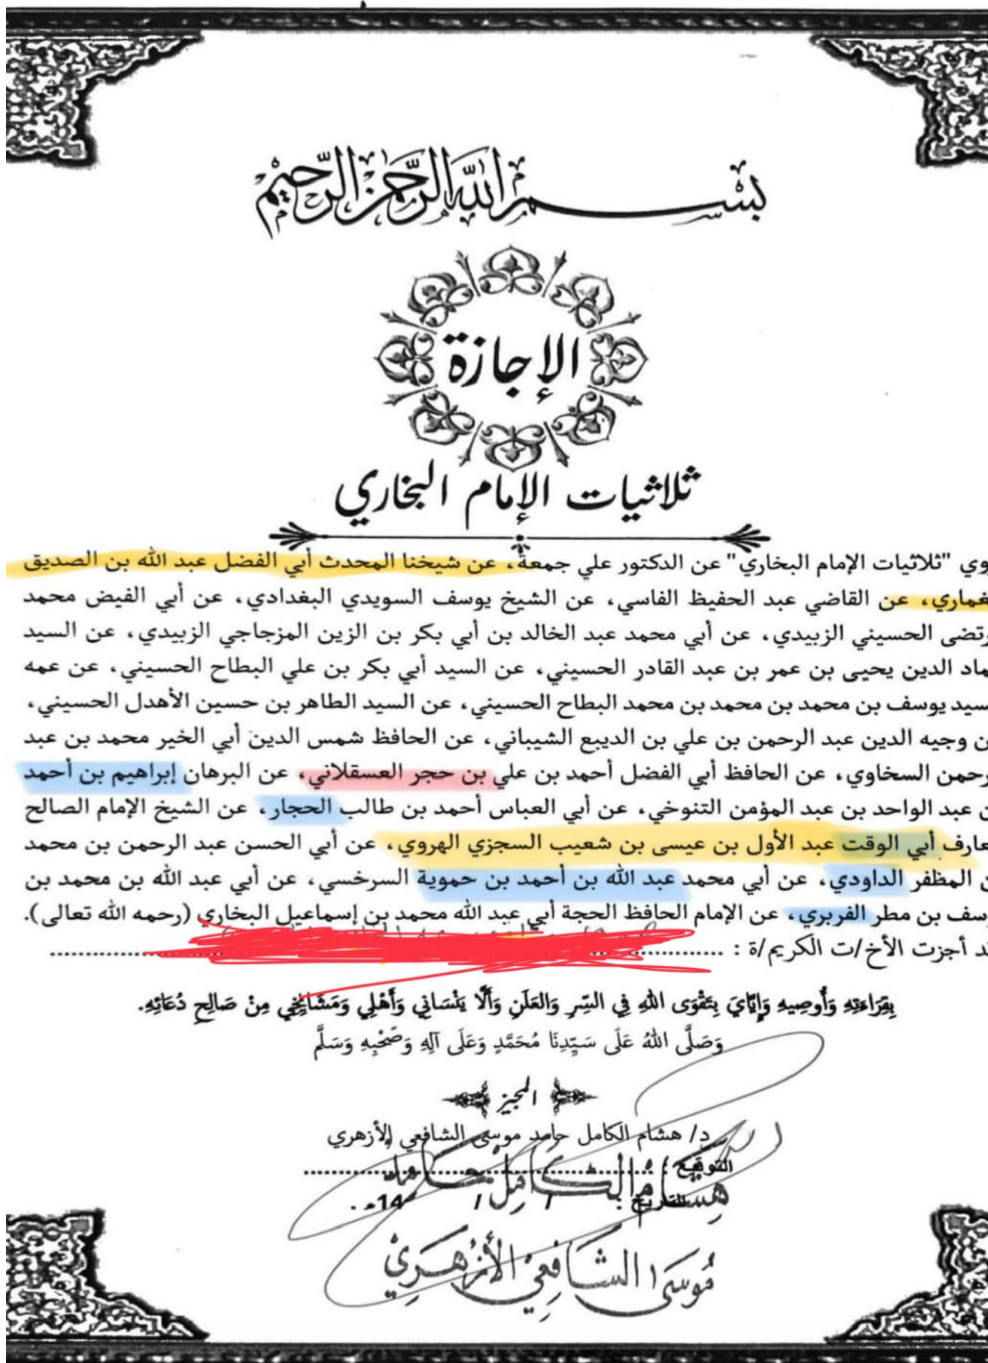 بسم الله الرحمن الرحيم
الإجازة
ثلاثيات الإمام البخاري
وي "ثلاثيات الإمام البخاري" عن الدكتور علي جمعة، عن شيخنا المحدث أبي الفضل عبد الله بن الصديق
غماري، عن القاضي عبد الحفيظ الفاسي، عن الشيخ يوسف السويدي البغدادي، عن أبي الفيض محمد
رتضى الحسيني الزبيدي، عن أبي محمد عبد الخالد بن أبي بكر بن الزين المزجاجي الزبيدي، عن السيد
ماد الدين يحيى بن عمر بن عبد القادر الحسيني، عن السيد أبي بكر بن علي البطاح الحسيني، عن عمه
سيد يوسف بن محمد بن محمد بن محمد البطاح الحسيني، عن السيد الطاهر بن حسين الأهدل الحسيني،
ن وجيه الدين عبد الرحمن بن علي بن الديبع الشيباني، عن الحافظ شمس الدين أبي الخير محمد بن عبد
رحمن السخاوي، عن الحافظ أبي الفضل أحمد بن علي بن حجر العسقلاني، عن البرهان إبراهيم بن أحمد
ن عبد الواحد بن عبد المؤمن التنوخي، عن أبي العباس أحمد بن طالب الحجار، عن الشيخ الإمام الصالح
عارف أبي الوقت عبد الأول بن عيسى بن شعيب السجزي الهروي، عن أبي الحسن عبد الرحمن بن محمد
ن المظفر الداودي، عن أبي محمد عبد الله بن أحمد بن حموية السرخسي، عن أبي عبد الله بن محمد بن
وسف بن مطر الفربري، عن الإمام الحافظ الحجة أبي عبد الله محمد بن إسماعيل البخاري (رحمه الله تعالى).
د أجزت الأخ/ت الكريم/ة :
بِقِرَاءَتِهِ وَأُوصِيهِ وَإِيَّايَ بِتَقْوَى اللهِ فِي السِّرِ وَالعَلَنِ وَأَلَّا يَنْسَانِي وَأَهْلِي وَمَشَايِخِي مِنْ صَالِحِ دُعَائِهِ.
وَصَلَّى اللهُ عَلَى سَيِّدِنَا مُحَمَّدٍ وَعَلَى آلِهِ وَصَحْبِهِ وَسَلَّم
المجيز
د/ هشام الكامل حامد موسى الشافعي الأزهري
التوقيع :
هشام الكامل حامد
التاريخ : / / 14هـ .
موسى الشافعي الأزهري